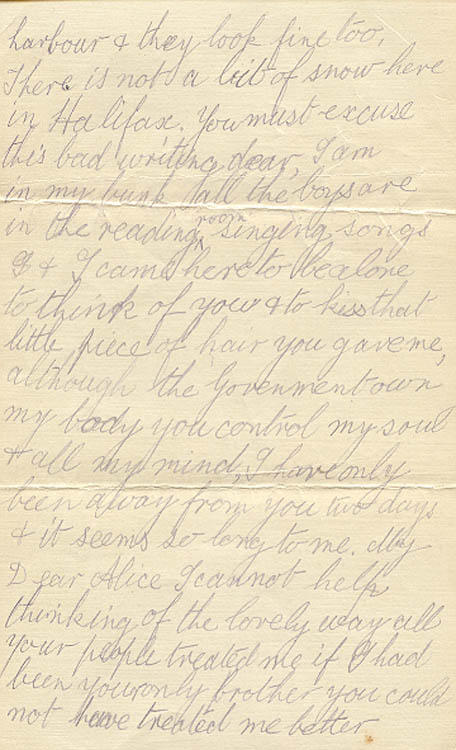 harbour & they look fine too.
There is not a bit of snow here
in Halifax. You must excuse
this bad writing dear, I am
in my bunk & all the boys are
in the reading room singing songs
& I came here to be alone
to think of you & to kiss that
little piece of hair you gave me,
although the Govenment own
my body you control my soul
& all my mind, I have only
been away from you two days
& it seems so long to me. My
Dear Alice I cannot help
thinking of the lovely way all
your people treated me if I had
been your only brother you could
not have treated me better